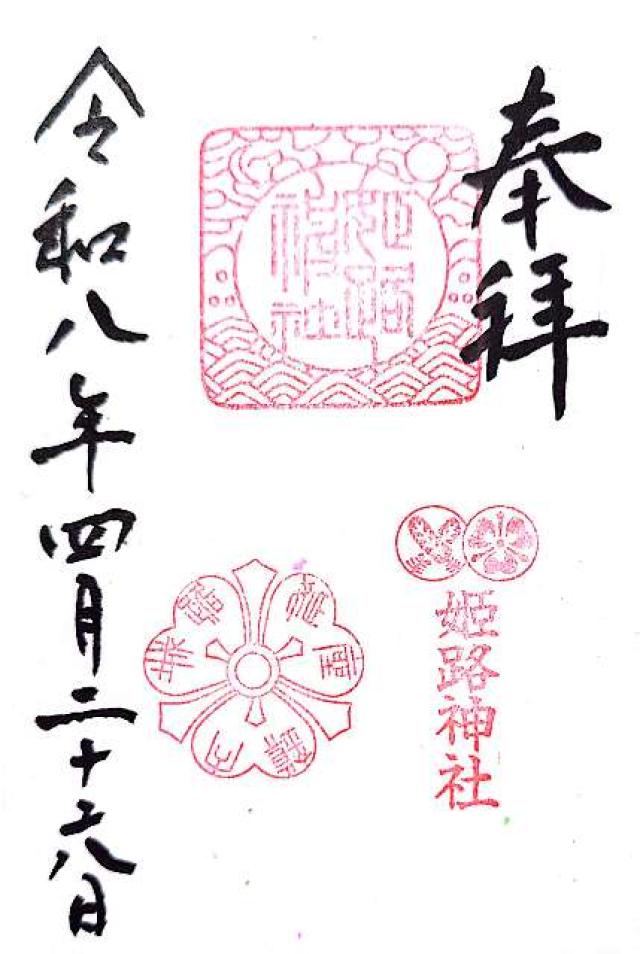 奉拝
姫路神社
姫路神社
令和八年四月二十六日